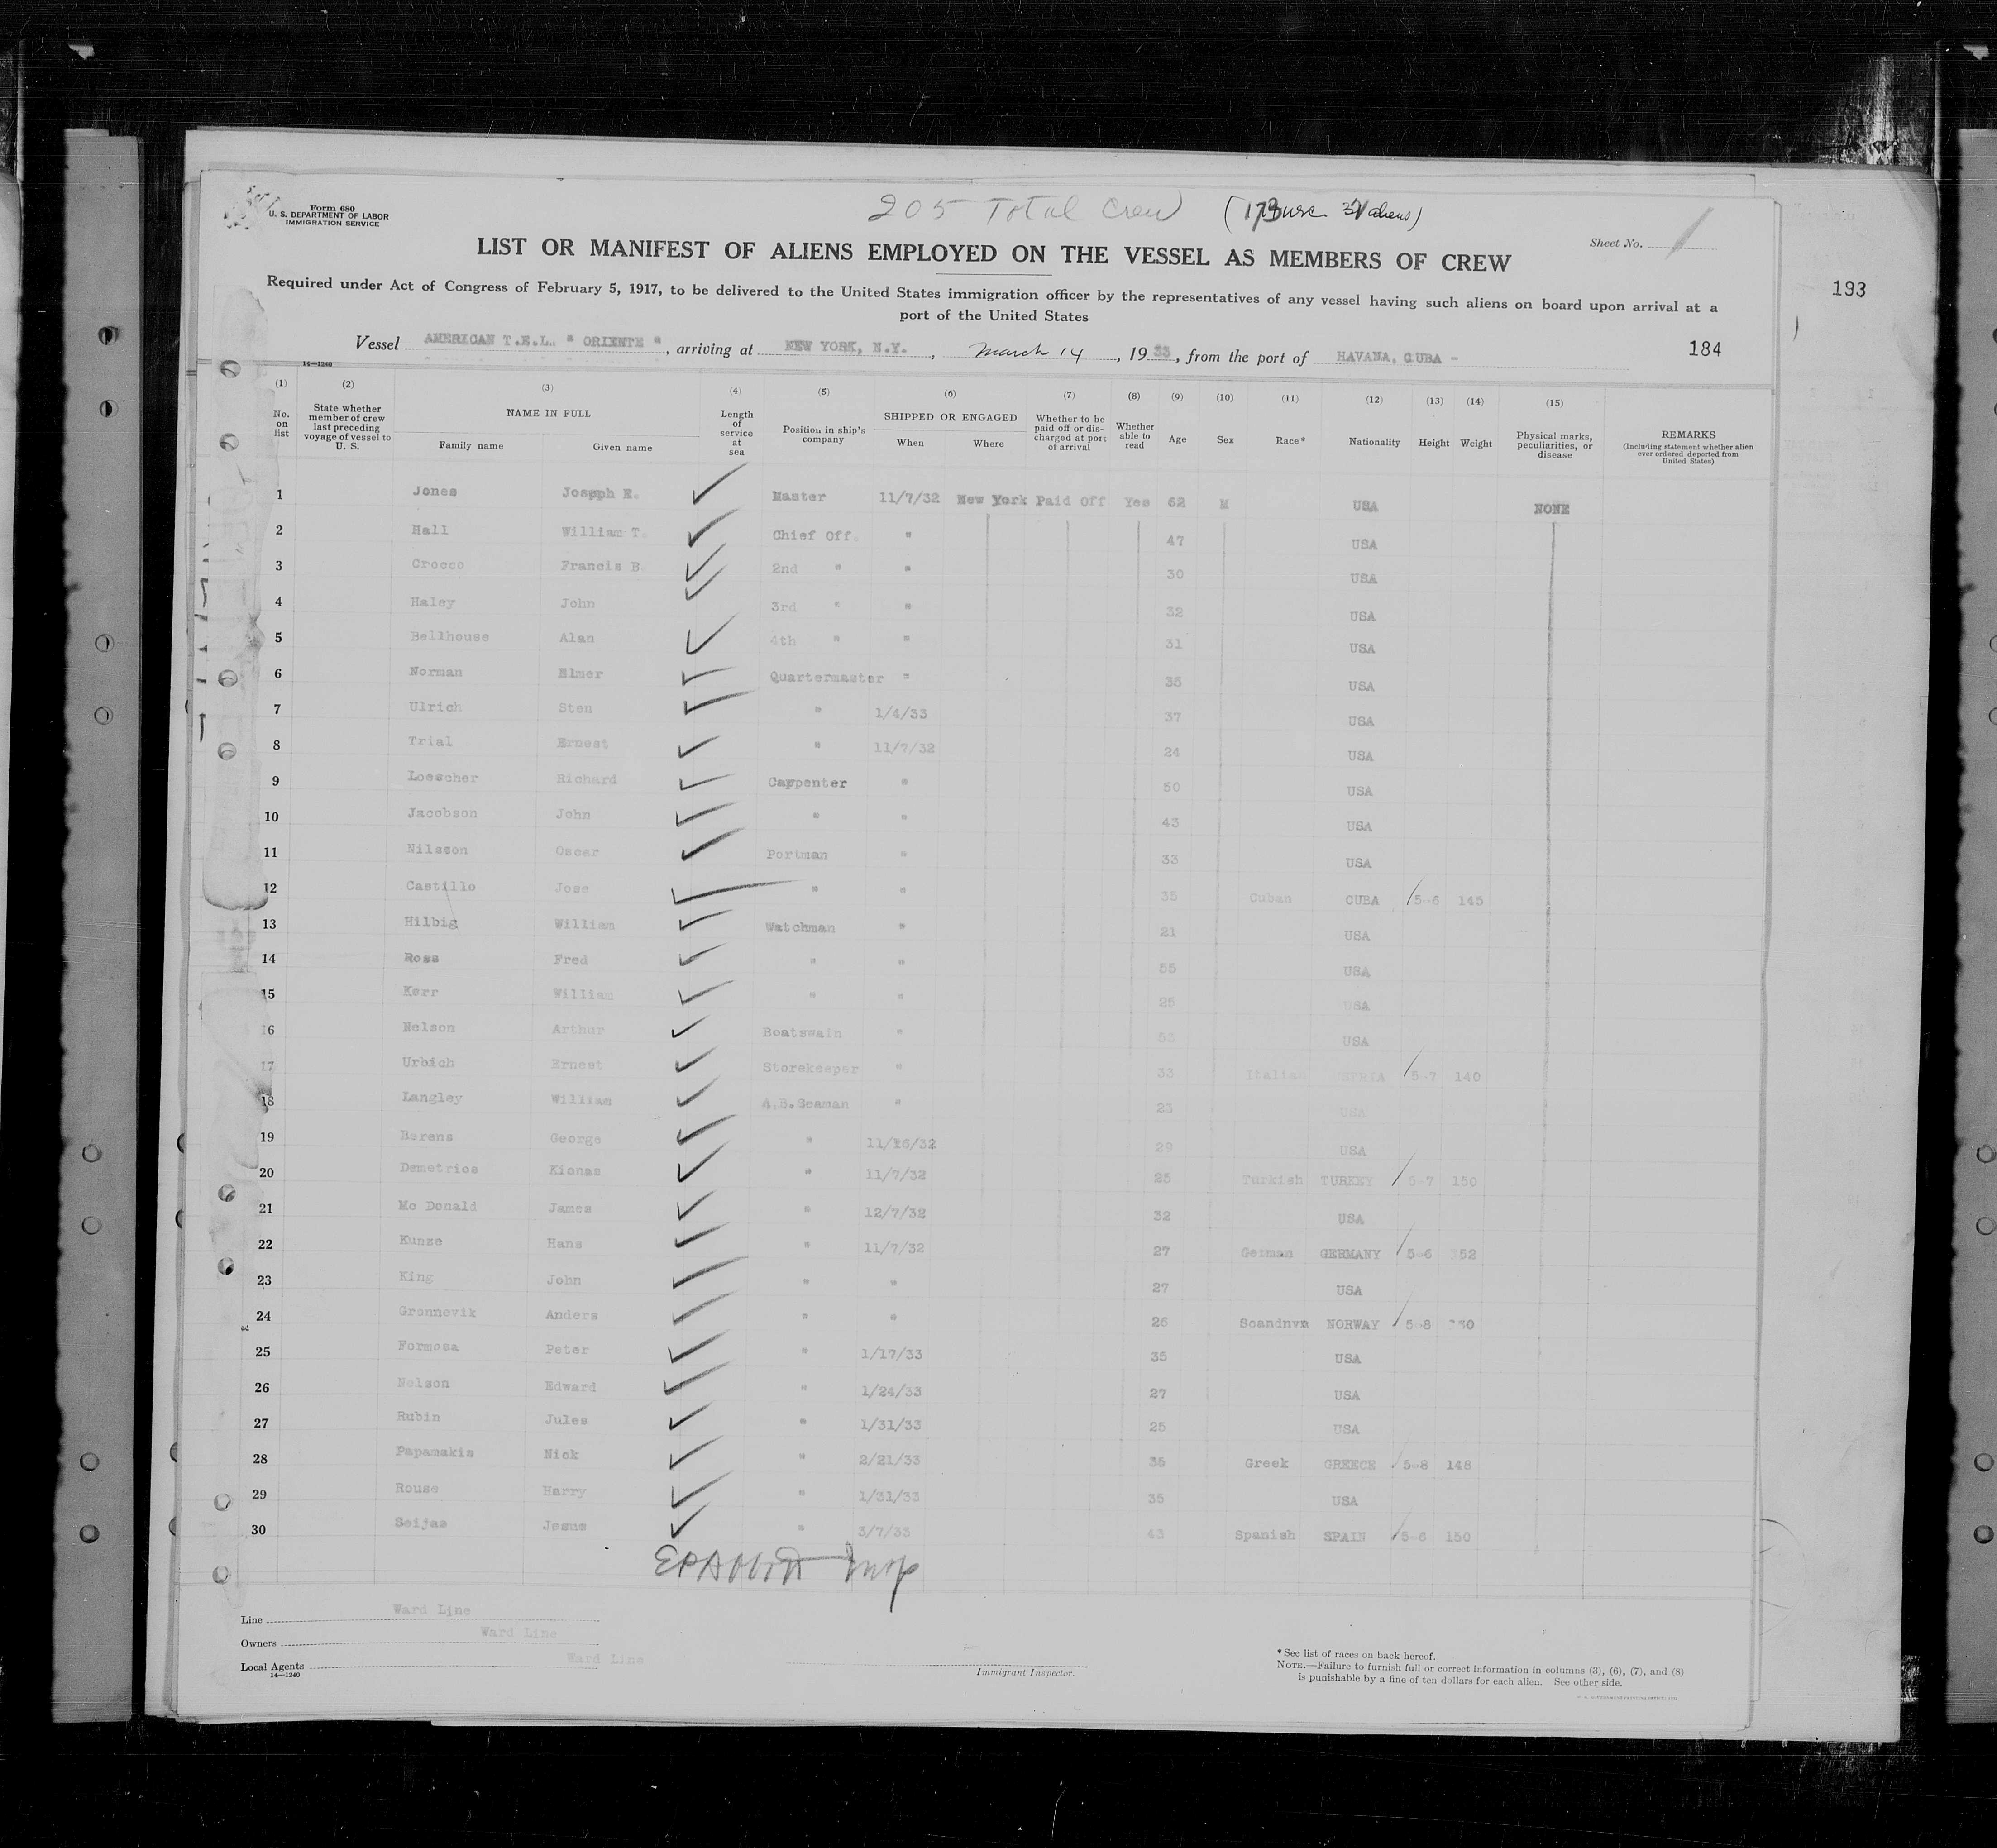 Form 680
U. S. DEPARTMENT OF LABOR
IMMIGRATION SERVICE
205 Total Crew
Sheet No. 1
LIST OR MANIFEST OF ALIENS EMPLOYED ON THE VESSEL AS MEMBERS OF CREW
193
Required under Act of Congress of February 5, 1917, to be delivered to the United States immigration officer by the representatives of any vessel having such aliens on board upon arrival at a
port of the United States
Vessel AMERICAN T.E.L. " ORIENTE ", arriving at NEW YORK, N.Y., March 14, 1933, from the port of HAVANA, CUBA -
184
14—1240
(1) (2) (3) (4) (5) (6) (7) (8) (9) (10) (11) (12) (13) (14) (15)
No. on list
State whether member of crew last preceding voyage of vessel to U. S.
NAME IN FULL
Family name Given name
Length of service at sea
Position in ship's company
SHIPPED OR ENGAGED
When Where
Whether to be paid off or discharged at port of arrival
Whether able to read
Age
Sex
Race*
Nationality
Height
Weight
Physical marks, peculiarities, or disease
REMARKS
(Including statement whether alien ever ordered deported from United States)
1 Jones Joseph E. Master 11/7/32 New York Paid Off Yes 62 M USA NONE
2 Hall William T. Chief Off. " 47 USA
3 Crocco Francis B. 2nd " " 30 USA
4 Haley John 3rd " " 32 USA
5 Bellhouse Alan 4th " " 31 USA
6 Norman Elmer Quartermaster " 35 USA
7 Ulrich Sten " 1/4/33 37 USA
8 Trial Ernest " 11/7/32 24 USA
9 Loescher Richard Carpenter " 50 USA
10 Jacobson John " " 43 USA
11 Nilsson Oscar Portman " 33 USA
12 Castillo Jose " " 35 Cuban CUBA 5-6 145
13 Hilbig William Watchman " 21 USA
14 Ross Fred " " 55 USA
15 Kerr William " " 25 USA
16 Nelson Arthur Boatswain " 53 USA
17 Urbich Ernest Storekeeper " 33 Italian 5-7 140
18 Langley William A.B.Seaman " 23 USA
19 Berens George " 11/16/32 29 USA
20 Demetrios Kionas " 11/7/32 25 Turkish TURKEY 5-7 150
21 Mc Donald James " 12/7/32 32 USA
22 Kunze Hans " 11/7/32 27 German GERMANY 5-6 152
23 King John " " 27 USA
24 Gronnevik Anders " " 26 Scandnvn NORWAY 5-8
25 Formosa Peter " 1/17/33 35 USA
26 Nelson Edward " 1/24/33 27 USA
27 Rubin Jules " 1/31/33 25 USA
28 Papamakis Nick " 2/21/33 35 Greek GREECE 5-8 148
29 Rouse Harry " 1/31/33 35 USA
30 Seijas Jesus " 3/7/33 43 Spanish SPAIN 5-6 150
Line Ward Line
Owners Ward Line
Local Agents Ward Line
14—1240
Immigrant Inspector.
* See list of races on back hereof.
NOTE.—Failure to furnish full or correct information in columns (3), (6), (7), and (8)
is punishable by a fine of ten dollars for each alien. See other side.